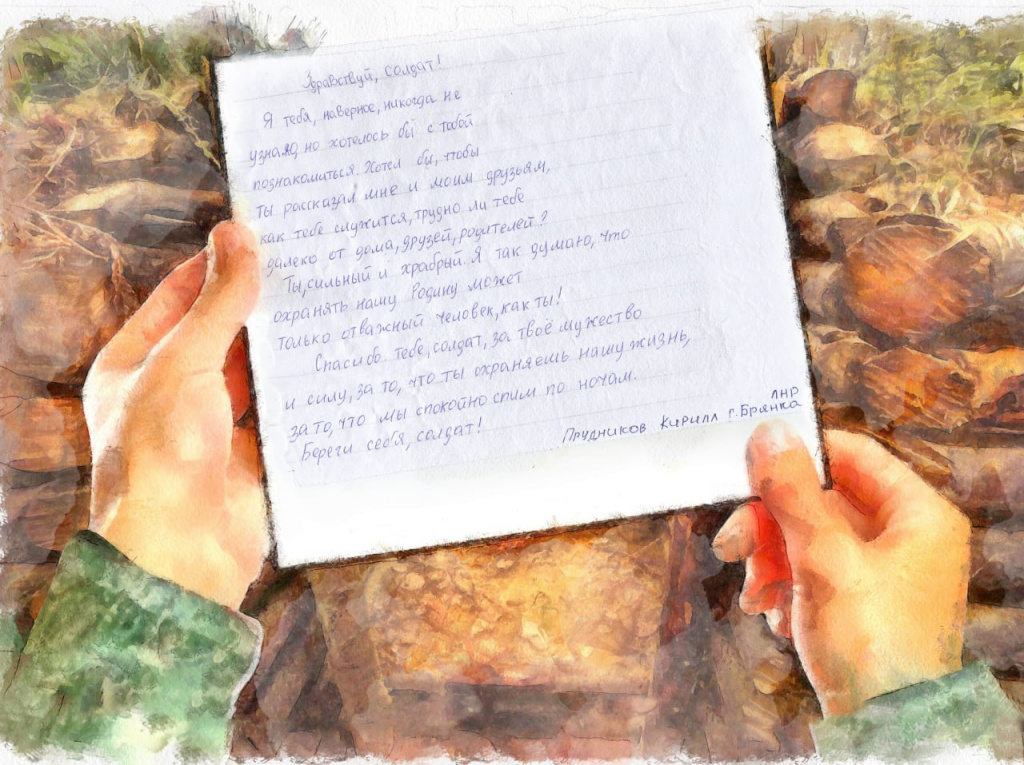 Здравствуй, солдат!
Я тебя, наверное, никогда не
узнаю, но хотелось бы с тобой
познакомиться. Хотел бы, чтобы
ты рассказал мне и моим друзьям,
как тебе служится, трудно ли тебе
далеко от дома, друзей, родителей?
Ты, сильный и храбрый. Я так думаю, что
охранять нашу Родину может
только отважный человек, как ты!
Спасибо тебе, солдат, за твоё мужество
и силу, за то, что ты охраняешь нашу жизнь,
за то, что мы спокойно спим по ночам.
Береги себя, солдат!
ЛНР
Прудников Кирилл г. Брянка